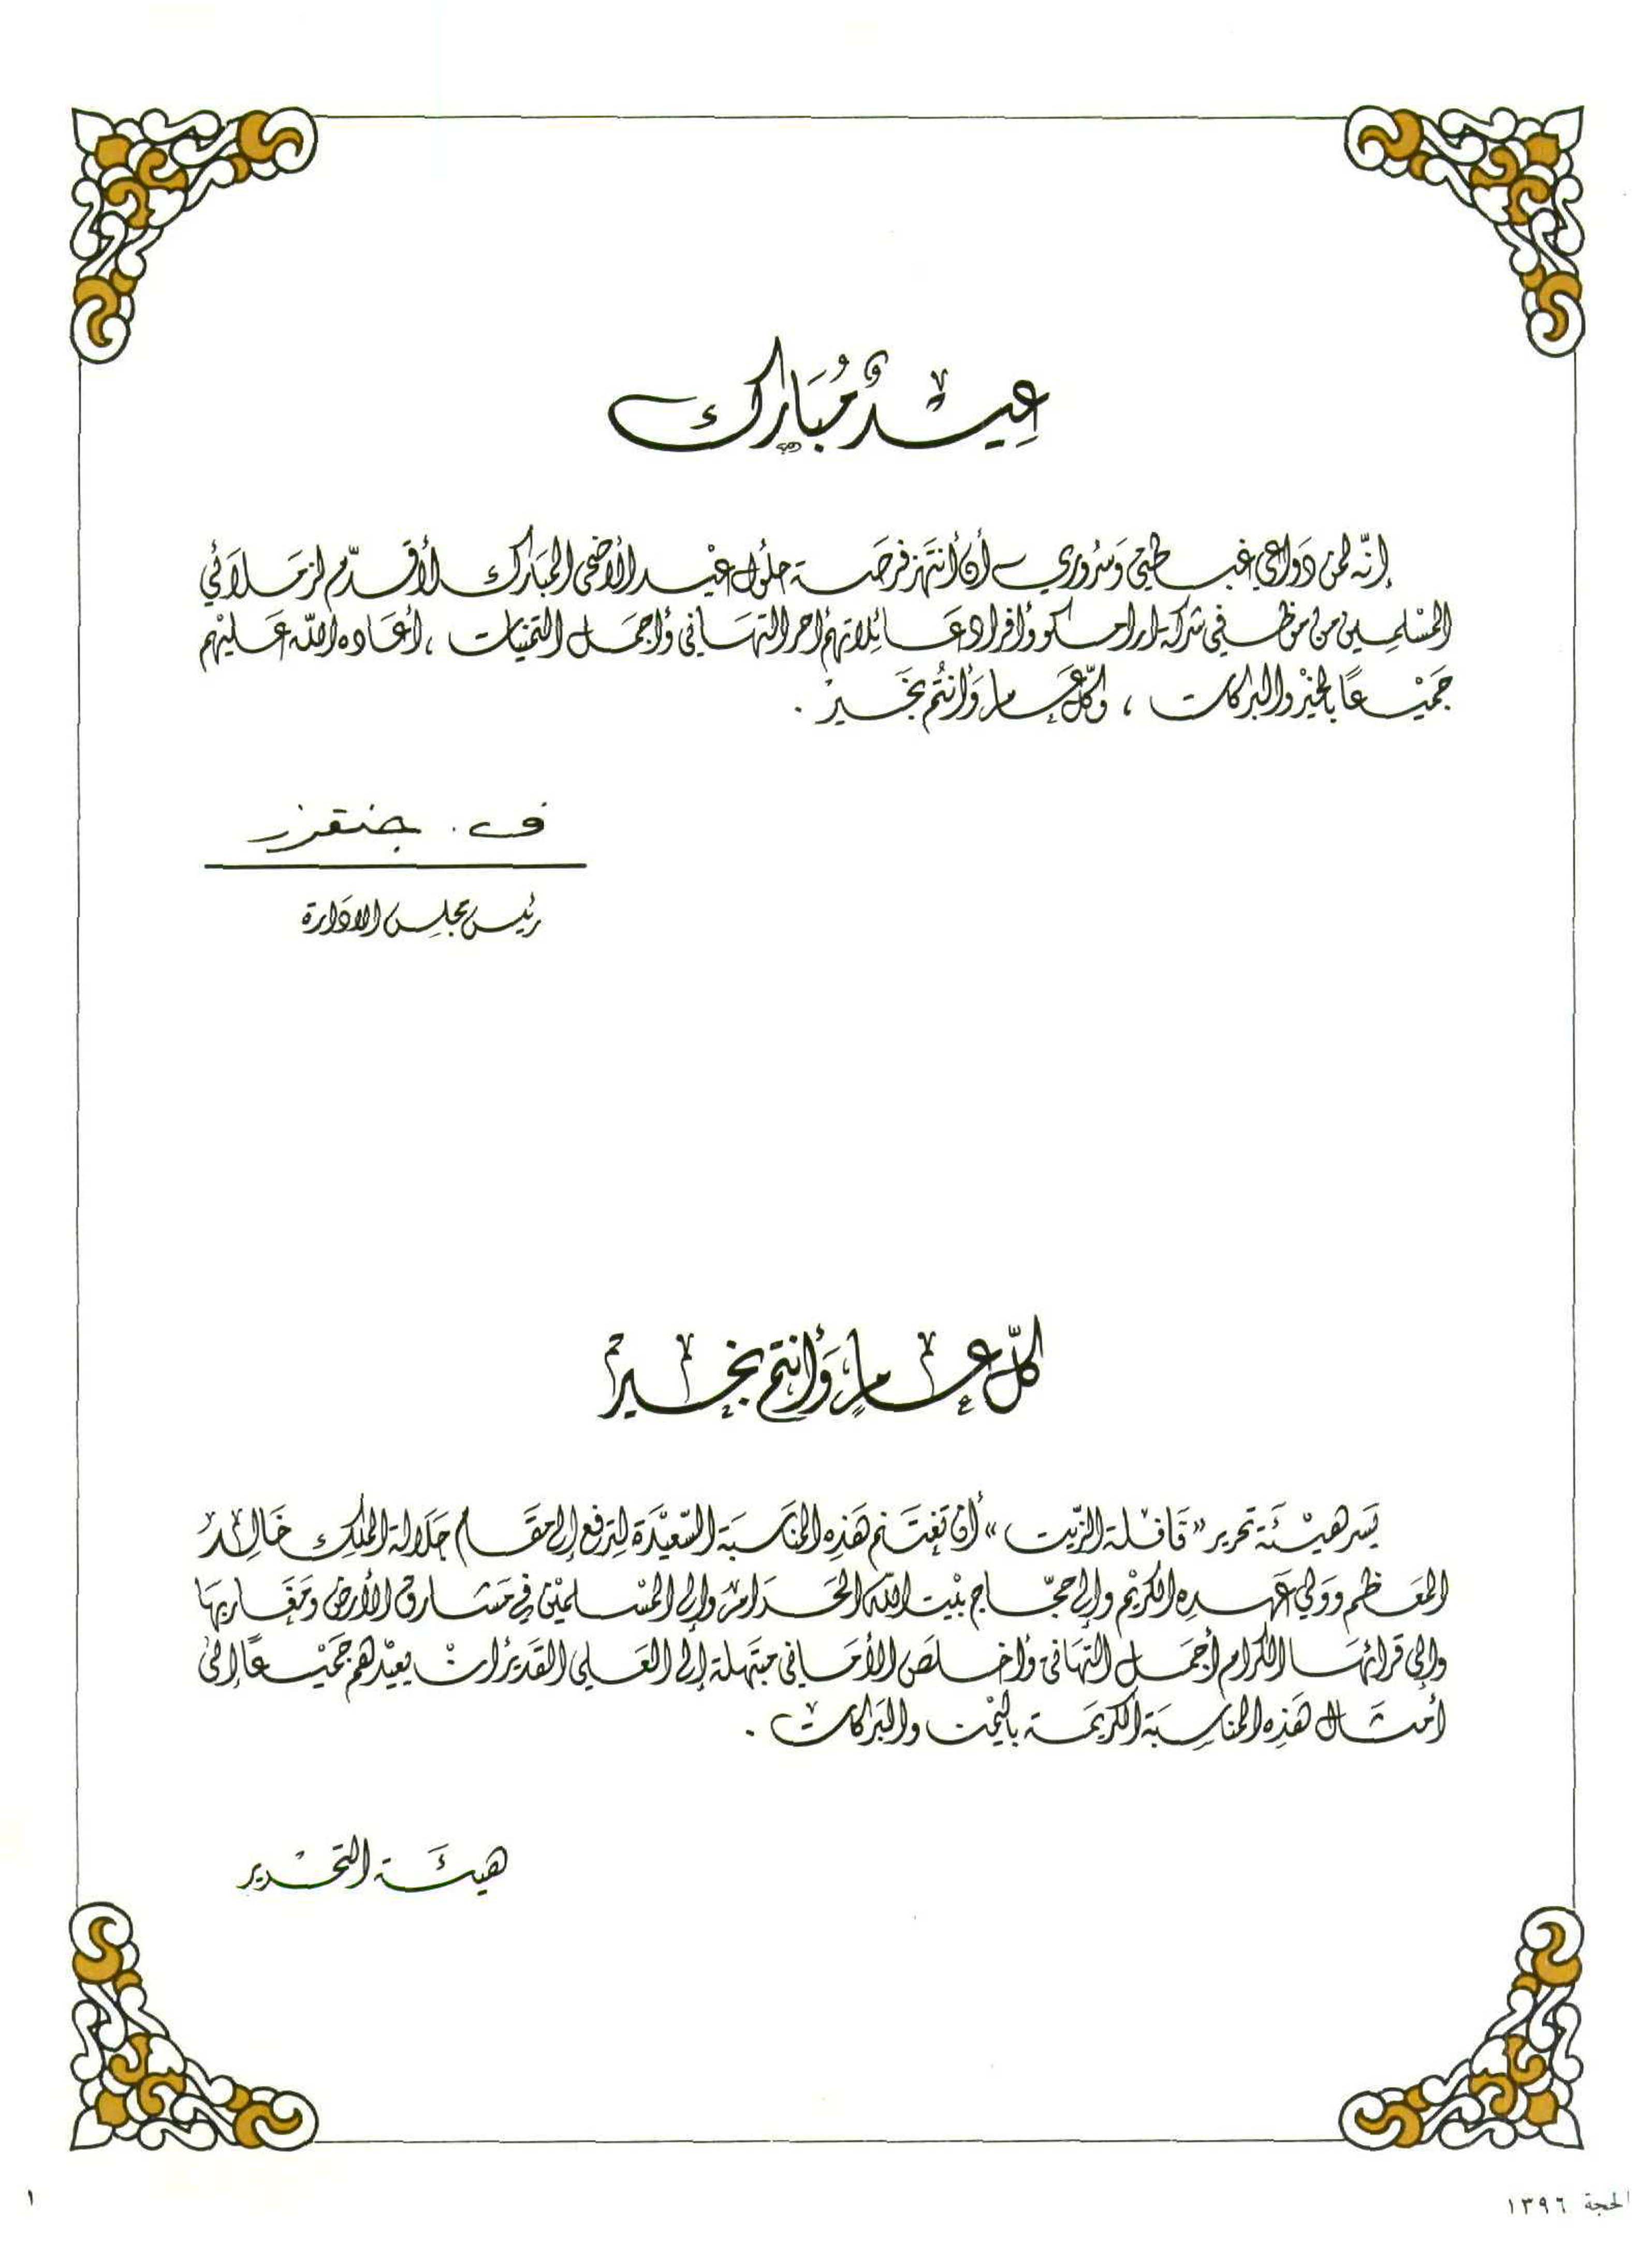 عيدٌ مُبَارك
إنّه لمن دَواعي غبطتي وَسُروري أن أنتهز فرصَة حلُول عيْد الأضحى المبَارك لأقدّم لزمَلائي
المسْلمين من موظفي شركة ارامكو وأفراد عَائلاتهم أحر التهَاني وَأجمَل التمنيات ، أعَاده الله عَليْهم
جَميْعًا بالخيْر والبركات ، وكلّ عَام وَأنتُم بخَيرْ .
ف . جنقرز
رئيس مجلس الادَارة
كلّ عَامٍ وَأنتم بخَير
يَسر هيْئَة تحرير «قَافلة الزّيت» أن تغتَنم هَذِه المنَاسَبَة السّعيْدَة لِترفع إلى مقَام جَلالة الملكِ خَالِد
المعَظم وَولي عَهدِه الكريْم وإلى حجّاج بيْت الله الحَرَام وإلى المسْلميْن في مَشَارق الأرض وَمَغَاربهَا
وإلى قرائهَا الكرام أجمَل التهَاني وَأخلَص الأمَاني مبتَهلة إلى العَلي القدير أنْ يعيْدهم جَميْعًا إلى
أمثَال هَذِه المنَاسِبَة الكريمَة باليمْن والبَركات .
هيئَة التحْرير
الحجة ١٣٩٦
١